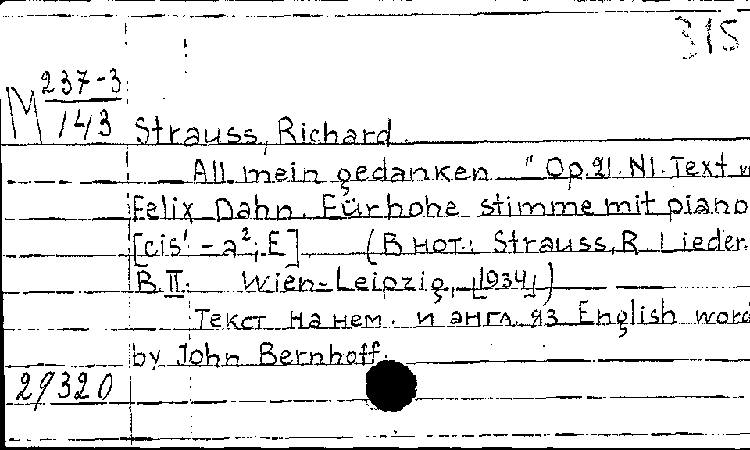 315
М 237-3
143
Strauss, Richard
All mein gedanken " Op. 21. N1. Text
Felix Dahn. Für hohe stimme mit piano
[cis¹ - a²; E] (В нот.: Strauss, R. Lieder.
B. II. Wien-Leipzig, [1934])
Текст на нем. и англ. яз English word
by John Bernhoff.
29320